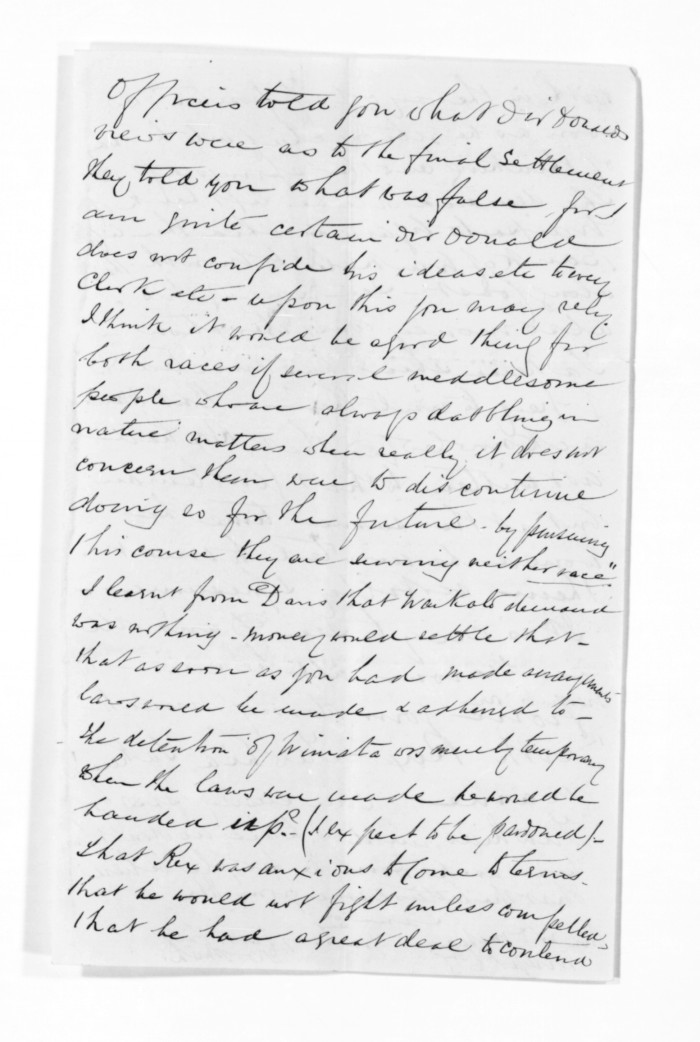 Officers told you what Sir Donalds
views were as to the final settlement
they told you what was false, for I
am quite certain Sir Donald
does not confide his ideas etc to every
Clerk etc - upon this you may rely
I think it would be a good thing for
both races if several meddlesome
people who are always dabbling in
native matters when really it does not
concern them were to discontinue
doing so for the future - by pursuing
this course they are serving neither race"
I learnt from Davis that Waikato demand
was nothing - money would settle that -
that as soon as you had made arrangements
laws would be made & adhered to -
the detention of Winiata was merely temporary
when the laws were made he would be
handed up - (I expect to be pardoned) -
that Rex was anxious to come to terms -
that he would not fight unless compelled,
that he had a great deal to contend